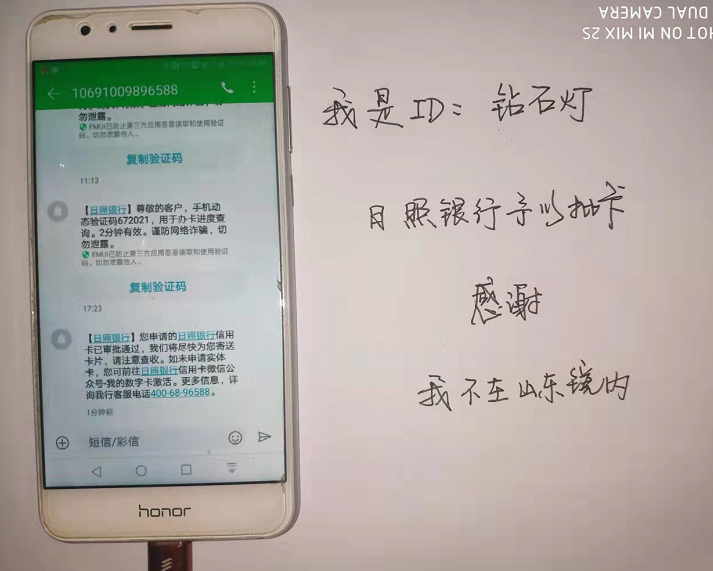 SHOT ON MI MIX 2S
DUAL CAMERA
10691009896588
切勿泄露。
EMUI已防止第三方应用恶意读取和使用验证
码，切勿泄露他人。
复制验证码
11:13
【日照银行】尊敬的客户，手机动
态验证码672021，用于办卡进度查
询。2分钟有效。谨防网络诈骗，切
勿泄露。
EMUI已防止第三方应用恶意读取和使用验证
码，切勿泄露他人。
复制验证码
17:23
【日照银行】您申请的日照银行信用
卡已审批通过，我们将尽快为您寄送
卡片，请注意查收。如未申请实体
卡，您可前往日照银行信用卡微信公
众号-我的数字卡激活。更多信息，详
询我行客服电话400-68-96588。
1分钟前
短信/彩信
honor
我是ID：钻石灯
日照银行予以批卡
感谢
我不在山东镜内